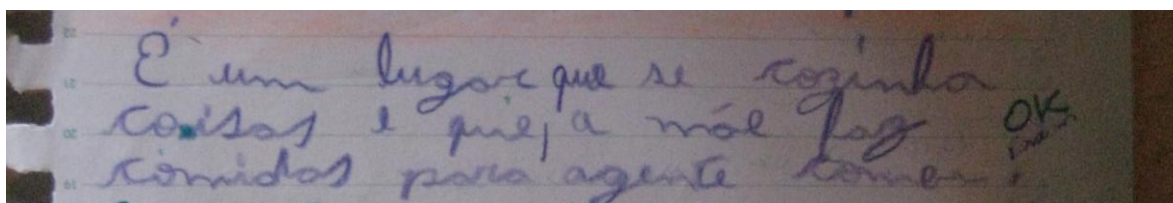 É um lugar que se cozinha
coisas e que, a mãe faz
OK
comidas para agente comer.